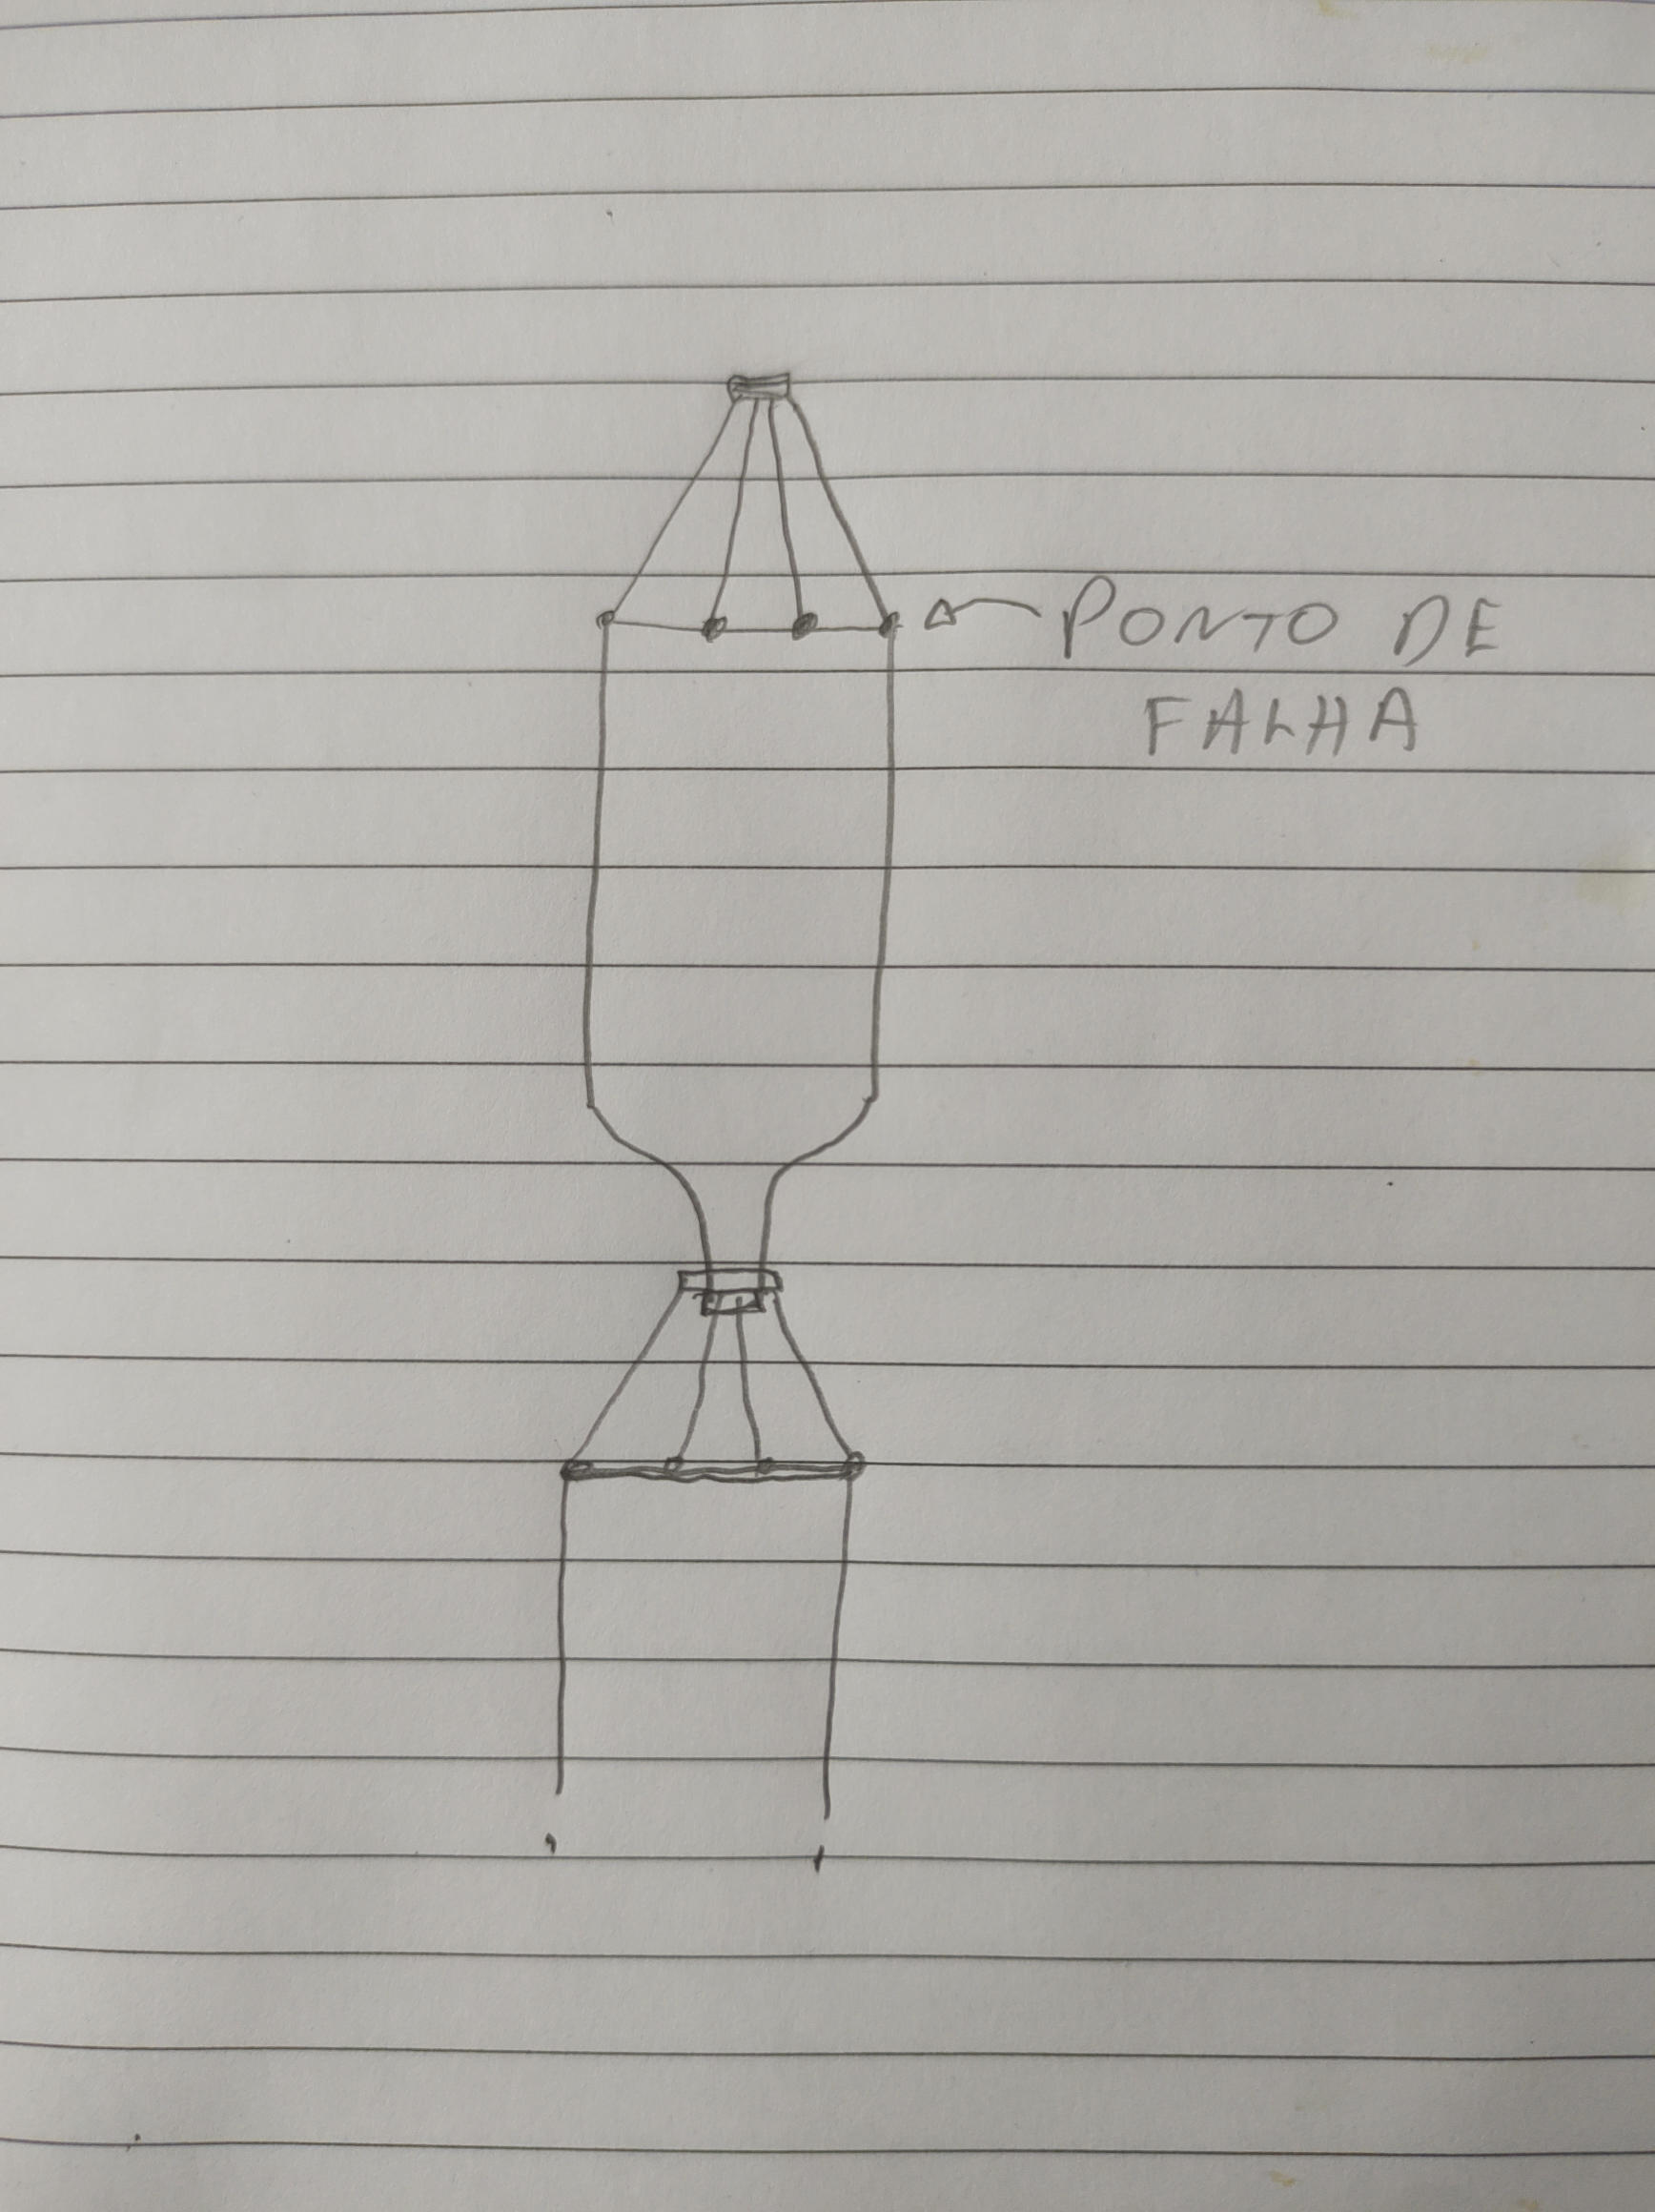 PONTO DE
FALHA